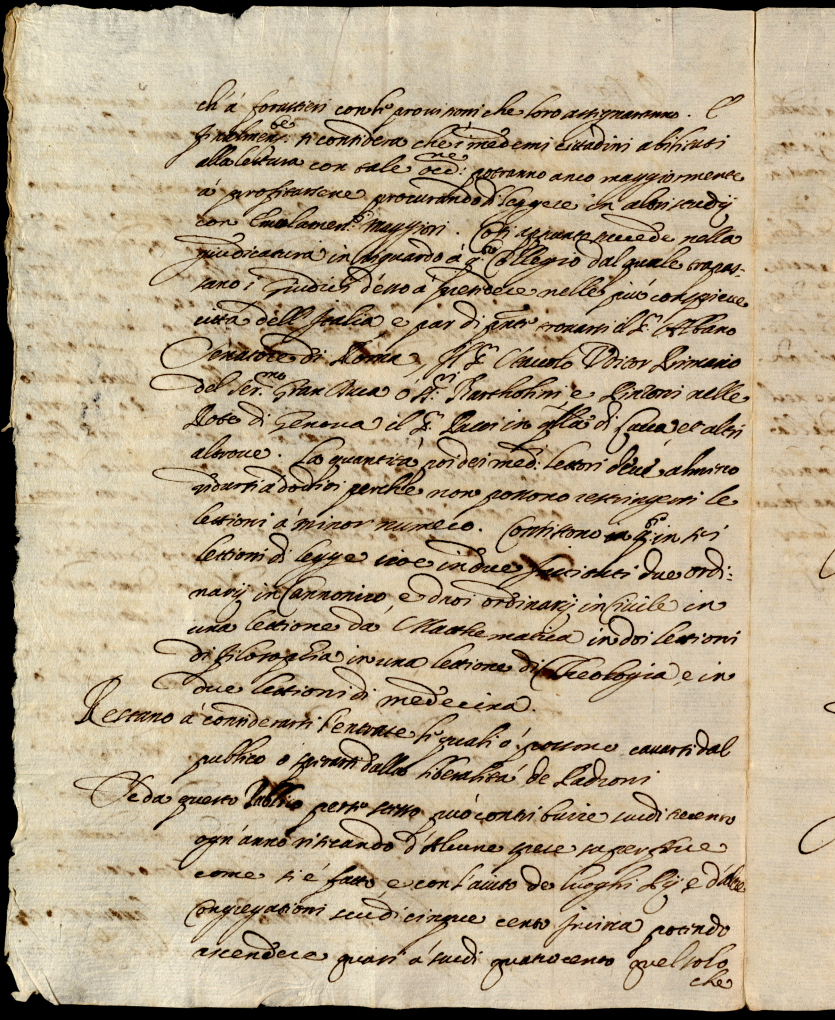 ch'à forastieri con le provisioni che loro assignaranno. E
finalmente si considera che i medemi cittadini abilitati
alla lettura con tale occ.ne potranno anco maggiormente
à profitarsene procurando di leggere in altri studij
con emolamen.ti maggiori. Così apunto succede nella
giudicatura in risguardo à q.sto Collegio dal quale trapas-
sano i Giudici d'esso a Giustitiere nelle più conspicue
città dell'Italia e par di fatti trovarsi il S.r Albano
Senatore di Roma, il S.r Ceuolo Auditor Primario
del Ser.mo Gran Duca ò SS.ri Bartholini e Pinzoni nelle
Rote di Genova il S.r Pucci in q.lla di Lucca et altri
altrove. La quantità poi dei med: lettori deve almeno
ridursi a dodici perche non possono restringersi le
lettioni à minor numero. Consistono in q. in sei
lettioni di legge cioe in due due ordi-
narij in Cannonico e duoi ordinarij in Civile in
una lettione da Mathematica in doi lettioni
di filosophia in una lettione di Theologia, e in
due lettioni di medecina.
Restano à considerarsi l'entrate le quali ò possono cavarsi dal
publico ò sperarsi dalla liberalità de Padroni
Se da questo Publico può contribuire scudi trecento
ogn'anno risecando d'Alcune spese superflue
come si è fatto e con l'aiuto de luoghi Pij e d'altre
Congregationi scudi cinque cento potendo
ascendere quasi à scudi quatrocento quel solo
che